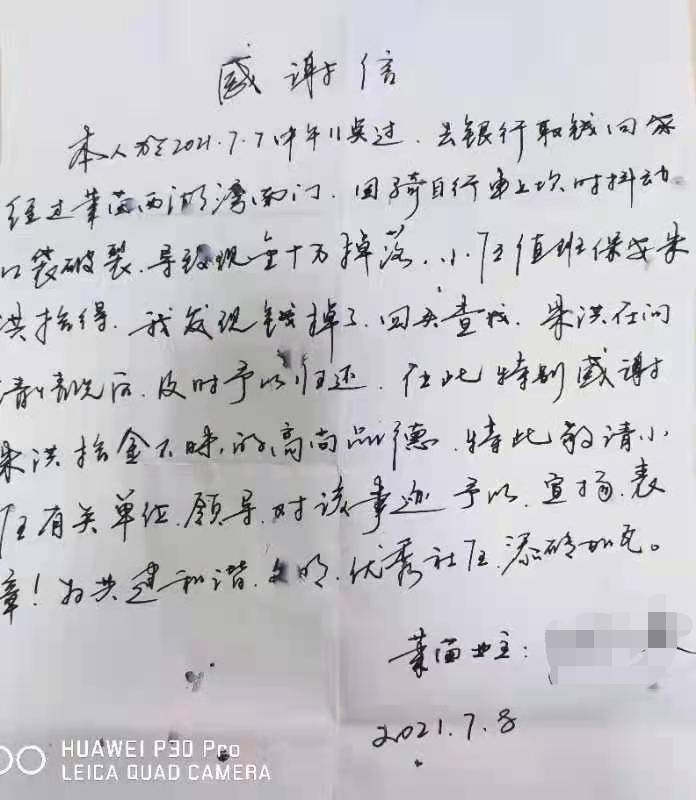 感谢信
本人于2021.7.7中午11点过.去银行取钱回家
经过莱茵西湖湾南门.因骑自行车上坎时抖动
口袋破裂.导致现金十万掉落.小区值班保安朱
洪拾得.我发现钱掉了.回头查找.朱洪在问
清情况后.及时予以归还.在此特别感谢
朱洪拾金不昧.的高尚品德.特此敬请小
区有关单位.领导.对该事迹予以.宣扬.表
章!为共建和谐.文明.优秀社区.添砖加瓦。
莱茵业主:
2021.7.8
HUAWEI P30 Pro
LEICA QUAD CAMERA